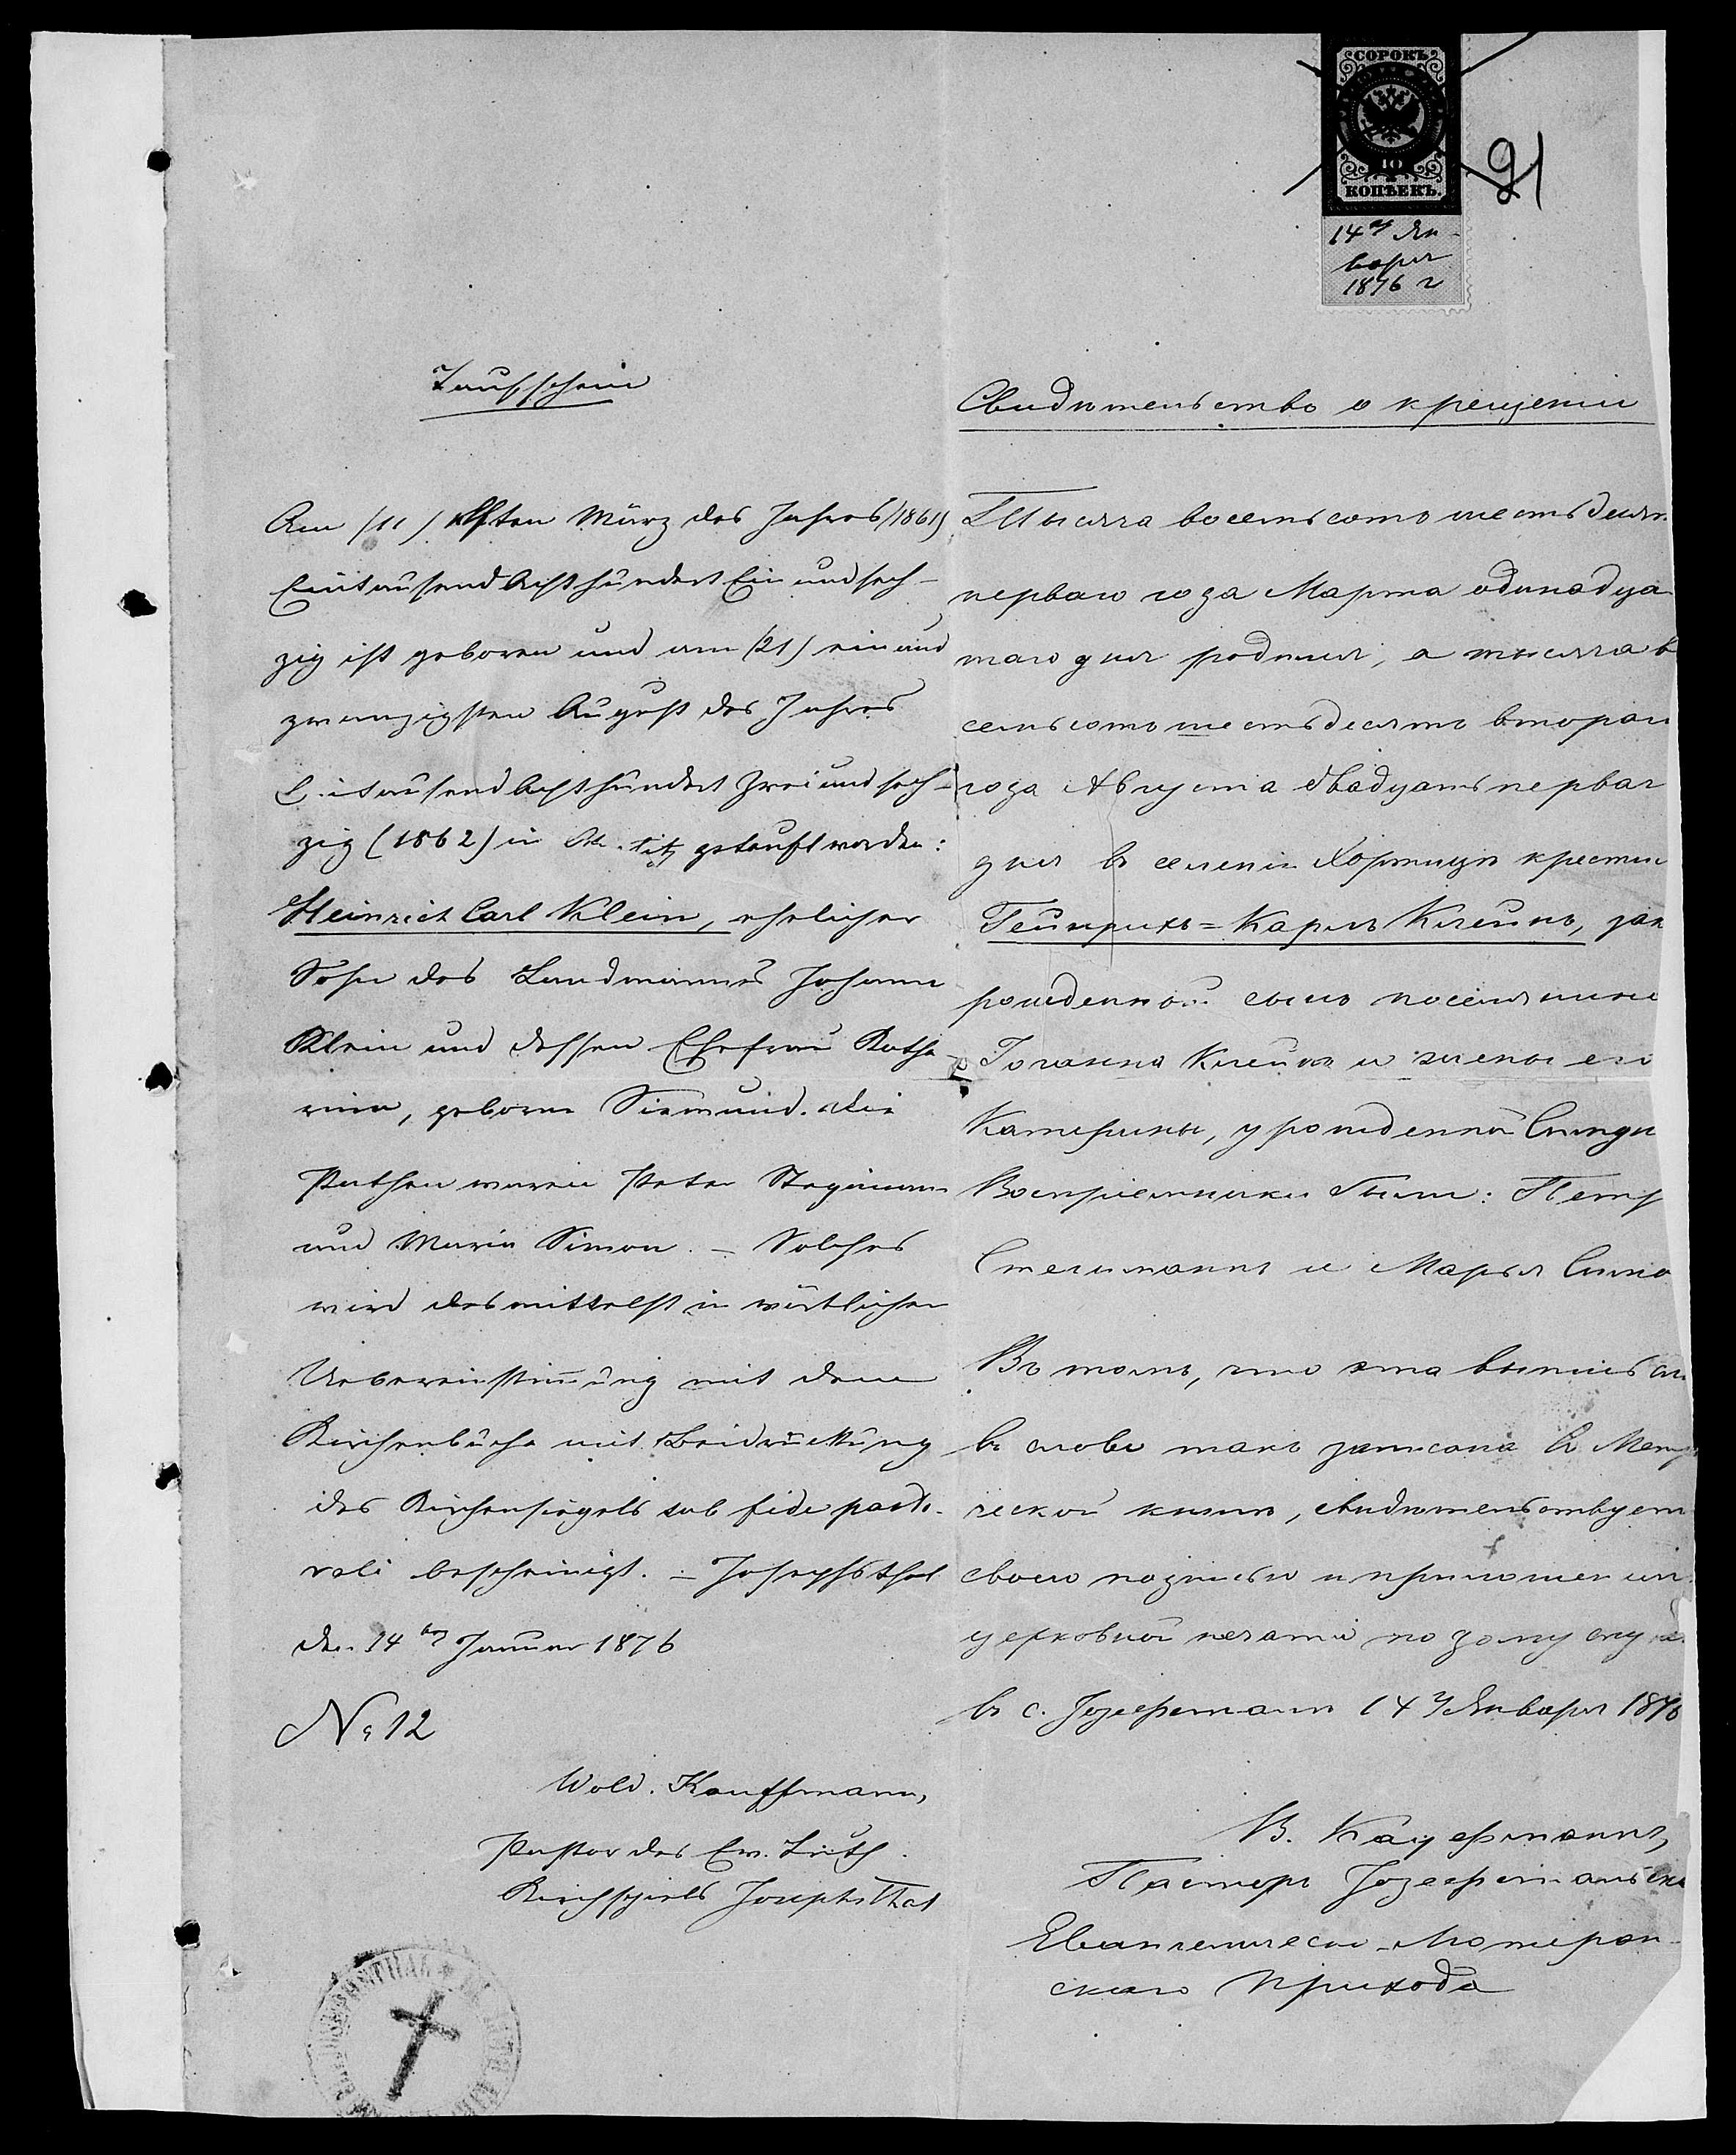 СОРОКЪ
40
КОПѢЕКЪ.
14го Ян-
варя
1876 г
91
Taufschein
Am (11) elften März des Jahres (1861)
Eintausend Achthundert Ein und sech-
zig ist geboren und am (21) ein und
zwanzigsten August des Jahres
Eintausend Achthundert Zwei und sech-
zig (1862) in getauft worden:
Heinrich Carl Klein, ehelicher
Sohn des Landmannes Johann
Klein und dessen Ehefrau Katha-
rina, geborne Siemund. Die
Pathen waren Peter Stegmann
und Maria Simon. – Solches
wird desmittelst in wörtlicher
Uebereinstimmung mit dem
Kirchenbuche mit Beidrückung
des Kirchensiegels sub fide pasto-
rali bescheinigt. – Josephsthal
den 14ten Januar 1876
No 12
Wold. Kauffmann,
Pastor des Ev. Luth.
Kirchspiels Josephsthal
Свидѣтельство о крещеніи
Тысяча восемьсотъ шестьдесят
перваго года Марта одинадца
таго дня родился, а тысяча в
семьсотъ шестьдесятъ втораг
года Августа двадцать перваг
дня въ селеніи Хортицѣ крести
Гейнрихъ=Карлъ Клейнъ, зак
рожденной сынъ поселянина
Іоганна Клейнъ и жены его
Катерины, урожденной
Воспріемники были: Петр
Стегманнъ и Марья Симо
Въ томъ, что эта выпись
въ слово такъ записана въ Метр
ческой книгѣ, свидѣтельствуем
своею подписью и приложеніем
церковной печати по
въ с. Іозефсталь 14го Января 1876
В. Кауфманнъ,
Пасторъ Іозефстальска
Евангелическо-Лютеран-
скаго прихода